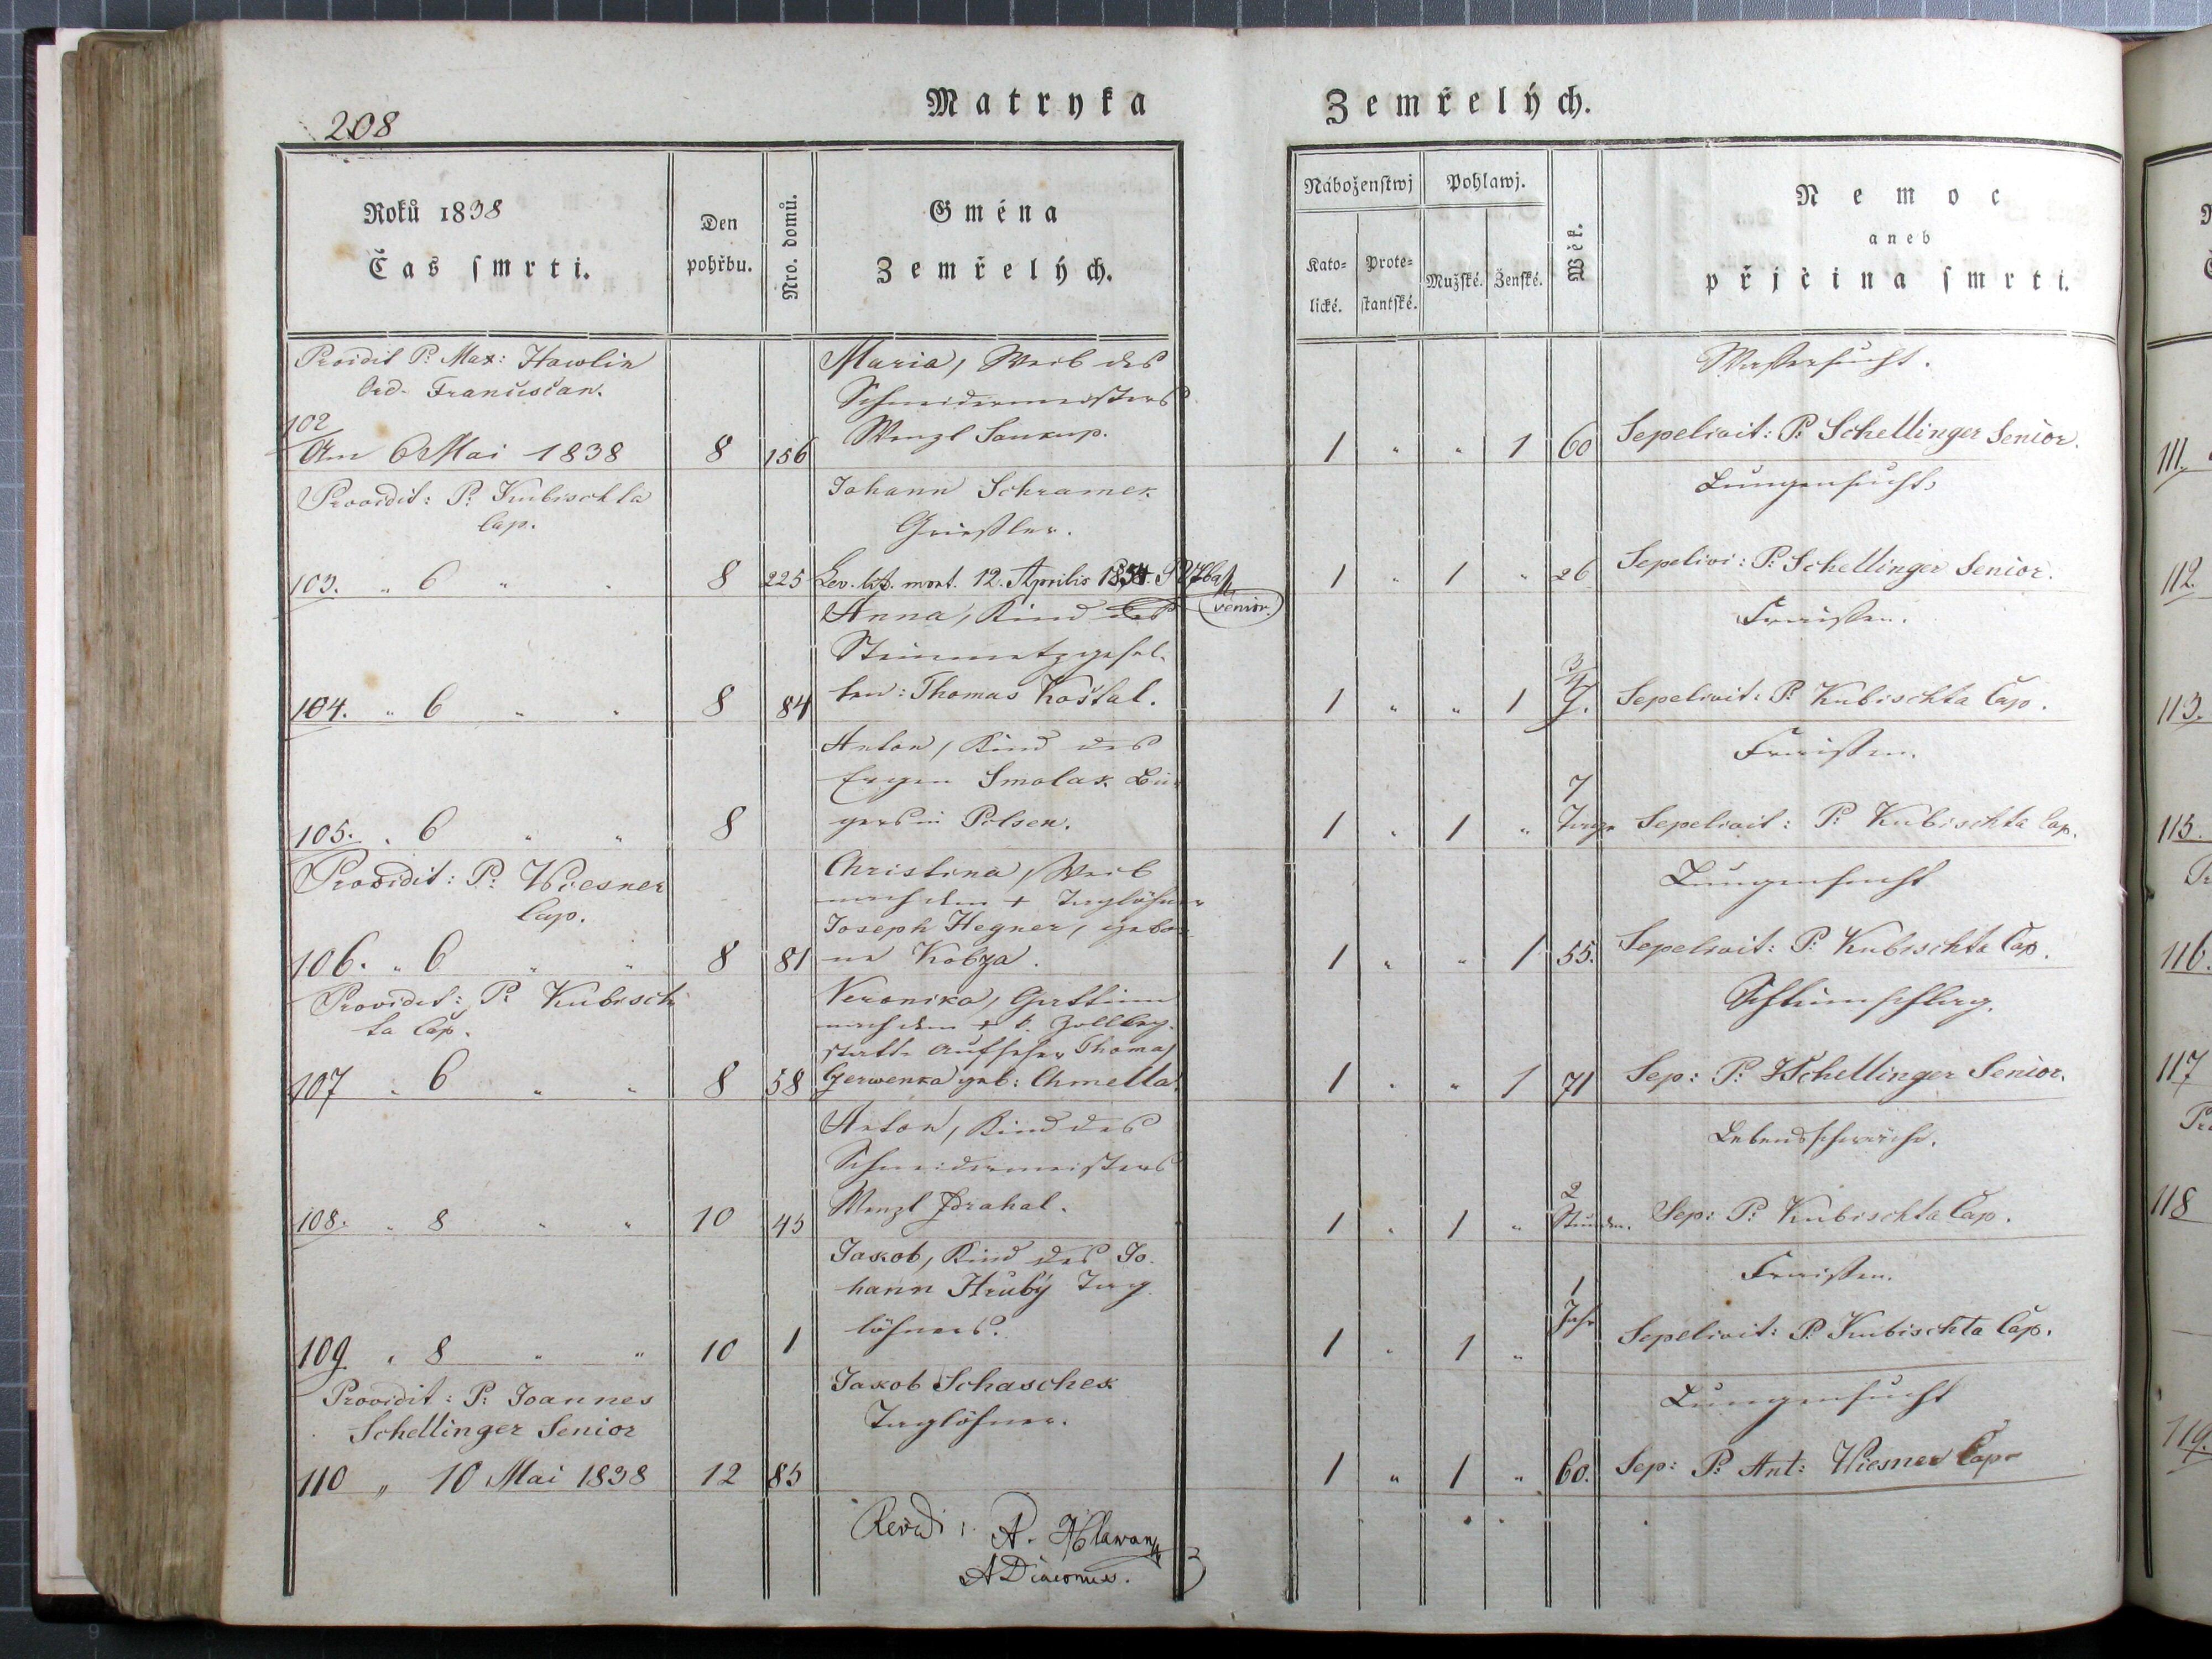 208
Matryka
Zemřelých.
Roků 1838
Čas smrti.
Den
pohřbu.
Nro. domů.
Gména
Zemřelých.
Náboženstwj
Kato=
lické.
Prote=
stantské.
Pohlawj.
Mužské.
Ženské.
Wěk.
Nemoc
aneb
přjčina smrti.
Providit P: Max: Hawlin
Ord. Franciscan.
102
Am 6 Mai 1838
8
156
Maria, Weib des
Schneidermeisters
Wenzl Soukup.
1 " " 1 60
Wassersucht.
Sepelivit: P. Schellinger Senior.
Providit: P. Kubischta
Cap.
103. " 6 " "
8
225
Johann Schramek
Griessler.
Lev. lit. mort. 12. Aprilis 1854.
Senior.
1 " 1 " 26
Lungensucht
Sepelivi: P. Schellinger Senior.
104. " 6 " "
8
84
Anna, Kind des
Steinmetzgesel-
len: Thomas Košťal.
1 " " 1 3/4 J.
Fraissen.
Sepelivit: P. Kubischta Cap.
105. " 6 " "
8
Anton, Kind des
Smolak Bür
gers in Pilsen.
1 " 1 " 7
Tage
Fraissen.
Sepelivit: P. Kubischta Cap.
Providit: P: Wiesner
Cap.
106. " 6 " "
8
81
Christina, Weib
nach dem + Taglöhner
Joseph Hegner, gebor
ne Kobza.
1 " " 1 55.
Lungensucht
Sepelivit: P. Kubischta Cap.
Providit: P: Kubisch
ta Cap.
107 " 6 " "
8
58
Veronika, Gattinn
nach dem + k. Zollleg-
statts Aufseher Thomas
Czerwenka geb: Chmella.
1 " " 1 71
Schleimschlag.
Sep: P: Schellinger Senior.
108. " 8 " "
10
45
Anton, Kind des
Schneidermeisters
Wenzl Zdrahal.
1 " 1 " 2
Stunden.
Lebensschwäche.
Sep: P: Kubischta Cap.
109 " 8 " "
10
1
Jakob, Kind des Jo-
hann Hrubý Tag
löhners.
1 " 1 " 1
Jahr
Fraissen.
Sepelivit: P. Kubischta Cap.
Providit: P: Joannes
Schellinger Senior
110 " 10 Mai 1838
12
85
Jakob Schaschek
Taglöhner.
1 " 1 " 60.
Lungensucht
Sep: P: Ant: Wiesner Cap.
Revidi: A. Hlawan
ADiaconus.
111.
112.
113.
115.
116.
117
118
119.